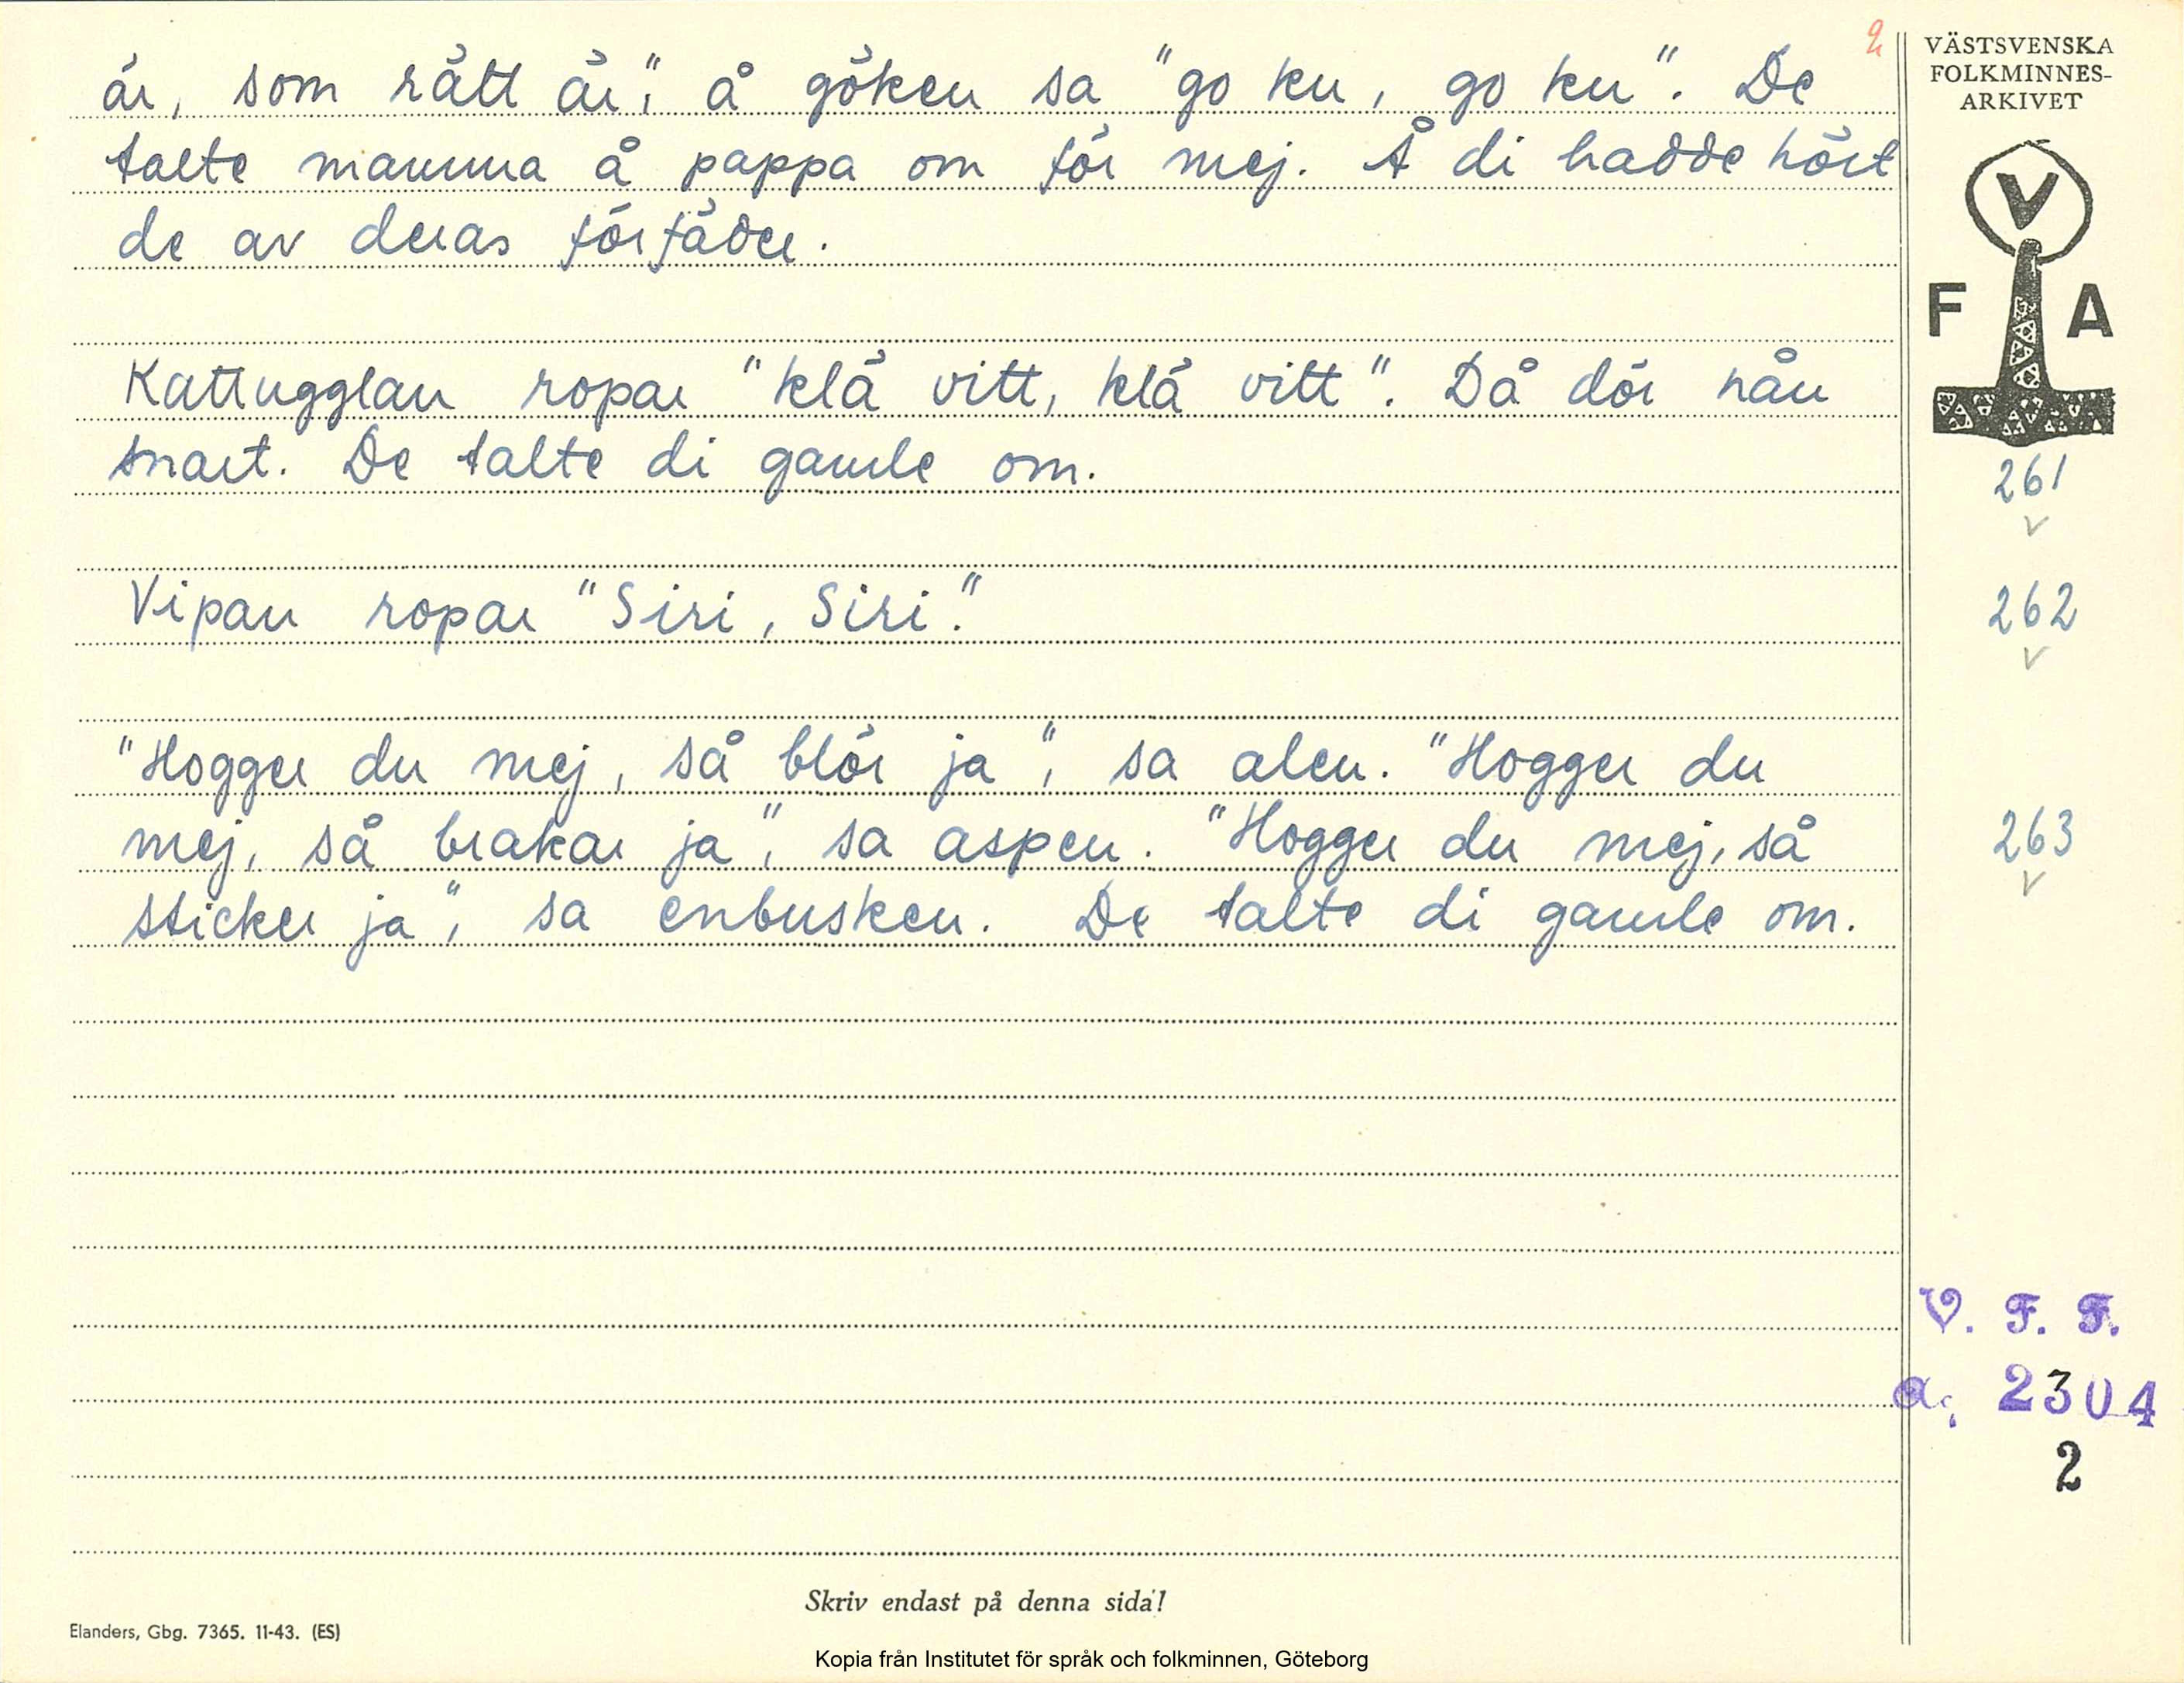 2
är, som rätt är", å göken sa "go ku, go ku". De
talte mamma å pappa om för mej. Å di hadde hört
de av deras förfäder.
Kattugglan ropar "klä vitt, klä vitt". Då dör nån
snart. De talte di gamle om.
Vipan ropar "Siri, Siri".
"Hogger du mej, så blör ja", sa alen. "Hogger du
mej, så brakar ja", sa aspen. "Hogger du mej, så
sticker ja", sa enbusken. De talte di gamle om.
VÄSTSVENSKA
FOLKMINNES-
ARKIVET
V
F A
261
262
263
V. F. F.
a. 2304
2
Skriv endast på denna sida!
Elanders, Gbg. 7365. 11-43. (ES)
Kopia från Institutet för språk och folkminnen, Göteborg